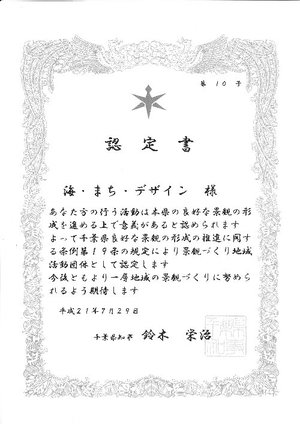 第10号
認定書
海・まち・デザイン 様
あなた方の行う活動は本県の良好な景観の形
成を進める上で意義があると認められます
よって千葉県良好な景観の形成の推進に関す
る条例第19条の規定により景観づくり地域
活動団体として認定します
今後ともより一層地域の景観づくりに努めら
れるよう期待します
平成21年7月29日
千葉県知事 鈴木 栄治